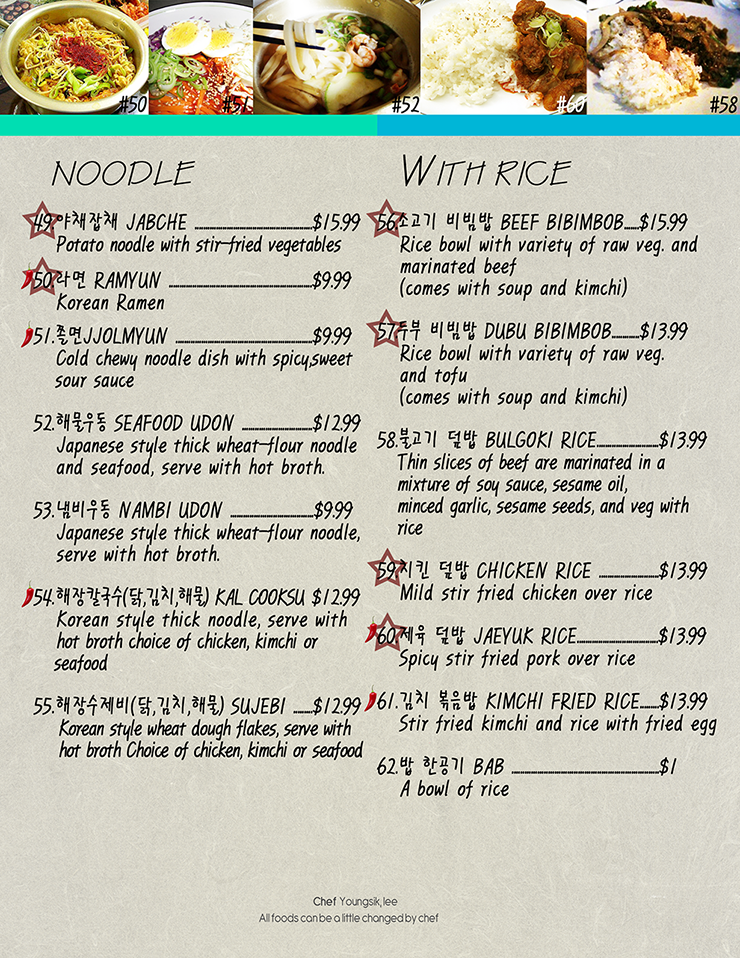 #50
#51
#52
#60
#58
NOODLE
49.야채잡채 JABCHE ........$15.99
Potato noodle with stir-fried vegetables
50.라면 RAMYUN ........$9.99
Korean Ramen
51.쫄면JJOLMYUN ........$9.99
Cold chewy noodle dish with spicy,sweet
sour sauce
52.해물우동 SEAFOOD UDON ........$12.99
Japanese style thick wheat-flour noodle
and seafood, serve with hot broth.
53.냄비우동 NAMBI UDON ........$9.99
Japanese style thick wheat-flour noodle,
serve with hot broth.
54.해장칼국수(닭,김치,해물) KAL COOKSU $12.99
Korean style thick noodle, serve with
hot broth choice of chicken, kimchi or
seafood
55.해장수제비(닭,김치,해물) SUJEBI ......$12.99
Korean style wheat dough flakes, serve with
hot broth Choice of chicken, kimchi or seafood
WITH RICE
56.소고기 비빔밥 BEEF BIBIMBOB.....$15.99
Rice bowl with variety of raw veg. and
marinated beef
(comes with soup and kimchi)
57.두부 비빔밥 DUBU BIBIMBOB........$13.99
Rice bowl with variety of raw veg.
and tofu
(comes with soup and kimchi)
58.불고기 덮밥 BULGOKI RICE........$13.99
Thin slices of beef are marinated in a
mixture of soy sauce, sesame oil,
minced garlic, sesame seeds, and veg with
rice
59.치킨 덮밥 CHICKEN RICE ........$13.99
Mild stir fried chicken over rice
60.제육 덮밥 JAEYUK RICE........$13.99
Spicy stir fried pork over rice
61.김치 볶음밥 KIMCHI FRIED RICE......$13.99
Stir fried kimchi and rice with fried egg
62.밥 한공기 BAB ........$1
A bowl of rice
Chef Youngsik,lee
All foods can be a little changed by chef